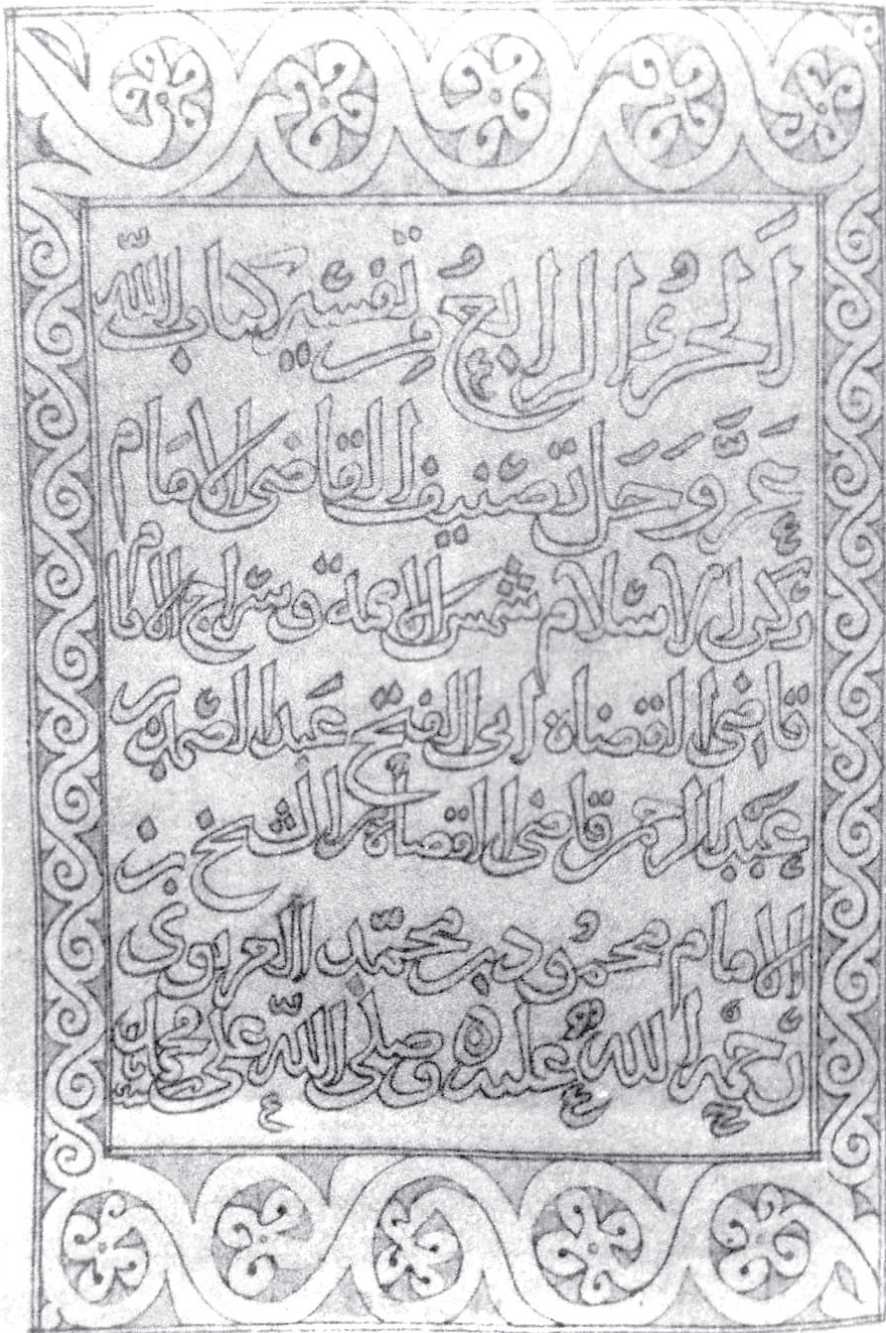 اَلجُزءُ الرابعُ في تفسير كتاب الله
عَزَّ وَجَل تصنيف القاضى الامَام
ركن الاسلام شمس الائمة وسراج الامة
قاضِى القضاة ابى الفتح عَبد الصمد بن
عبد الرحمن قاضى القضاة بن الشيخ بن
الامام محمُود بن محمّد الغزنوى
رَحمَةُ اللهِ عليه وصلى اللّه على محمد وآله